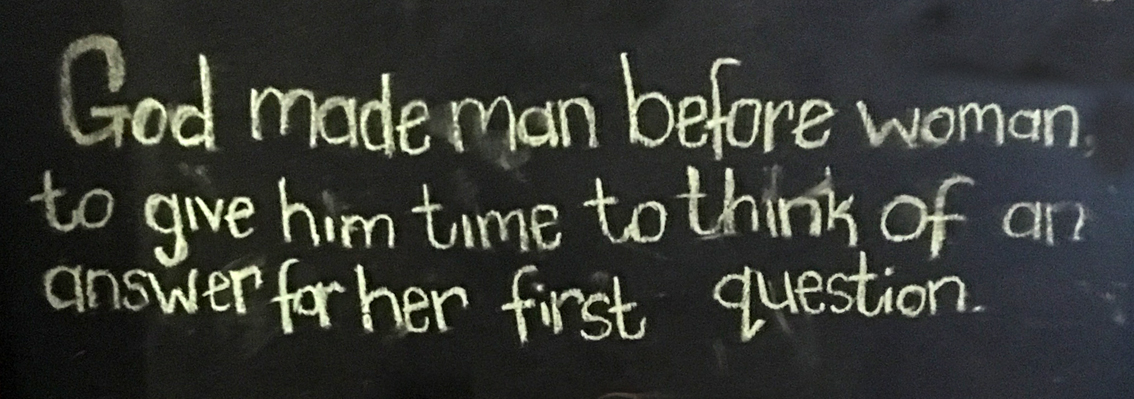 God made man before woman,
to give him time to think of an
answer for her first question.